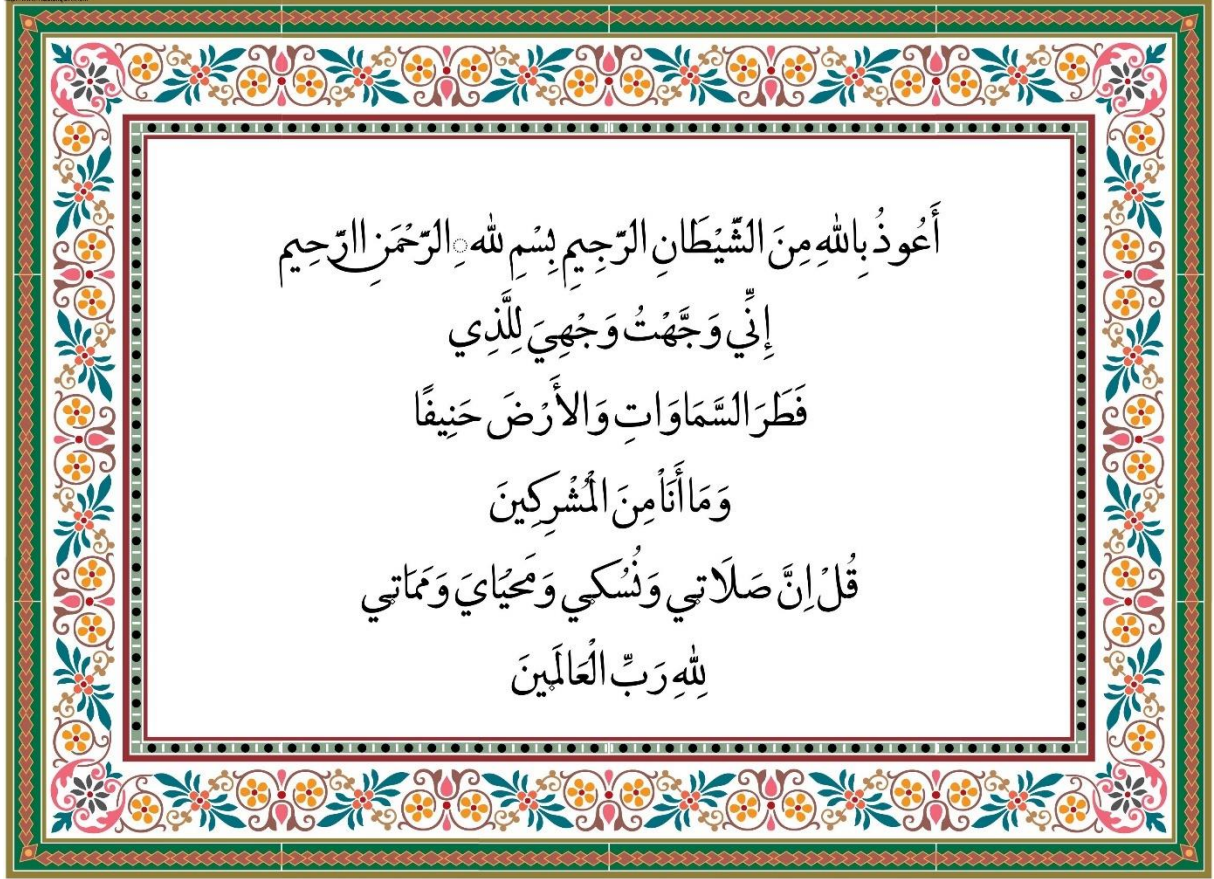 أَعُوذُ بِاللهِ مِنَ الشَّيْطَانِ الرَّجِيمِ بِسْمِ للهِ الرَّحْمَنِ اارَّحِيم
إِنِّي وَجَّهْتُ وَجْهِيَ لِلَّذِي
فَطَرَ السَّمَاوَاتِ وَالأَرْضَ حَنِيفًا
وَمَا أَنَاْ مِنَ الْمُشْرِكِينَ
قُلْ اِنَّ صَلَاتِي وَنُسُكِي وَمَحْيَايَ وَمَمَاتِي
لِلّٰهِ رَبِّ الْعَالَمِينَ